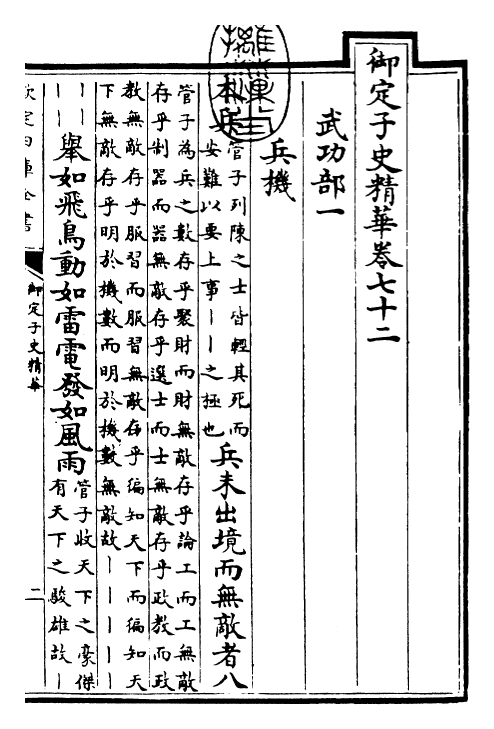 御定子史精華卷七十二
武功部一
兵機
本兵
管子列陳之士皆輕其死而
安難以要上事｜｜之極也
兵未出境而無敵者八
管子為兵之數存乎聚財而財無敵存乎論工而工無敵
存乎制器而器無敵存乎選士而士無敵存乎政教而政
教無敵存乎服習而服習無敵存乎徧知天下而徧知天
下無敵存乎明於機數而明於機數無敵故｜｜｜｜｜
｜｜
｜｜
舉如飛鳥動如雷電發如風雨
管子收天下之豪傑
有天下之駿雄故｜
欽定四庫全書
御定子史精華
二